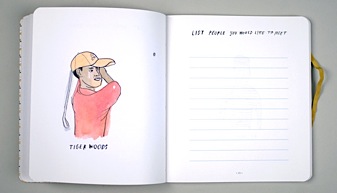 TIGER WOODS
LIST PEOPLE YOU WOULD LIKE TO MEET